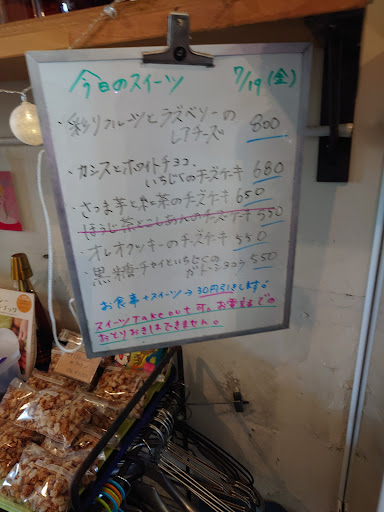 今日のスイーツ 7/19(金)
・彩りフルーツとラズベリーの
レアチーズ 800
・カシスとホワイトチョコ、
いちじくのチーズケーキ 680
・さつま芋と紅茶のチーズケーキ 650
ほうじ茶とこしあんのチーズケーキ 550
・オレオクッキーのチーズケーキ 550
・黒糖チャイといちじくの
ガトーショコラ 550
お食事+スイーツ→30円引きします。
スイーツTake out可。お電話での
おとりおきはできません。